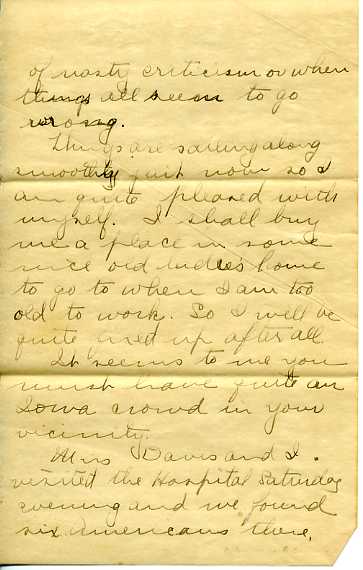 of nasty criticism or when
things all seem to go
wrong.
Things are sailing along
smoothly just now so I
am quite pleased with
myself. I shall buy
me a place in some
nice old ladies home
to go to when I am too
old to work. So I will be
quite fixed up after all.
It seems to me you
must have quite an
Iowa crowd in your
vicinity.
Mrs Davis and I
visited the Hospital Saturday
evening and we found
six Americans there,